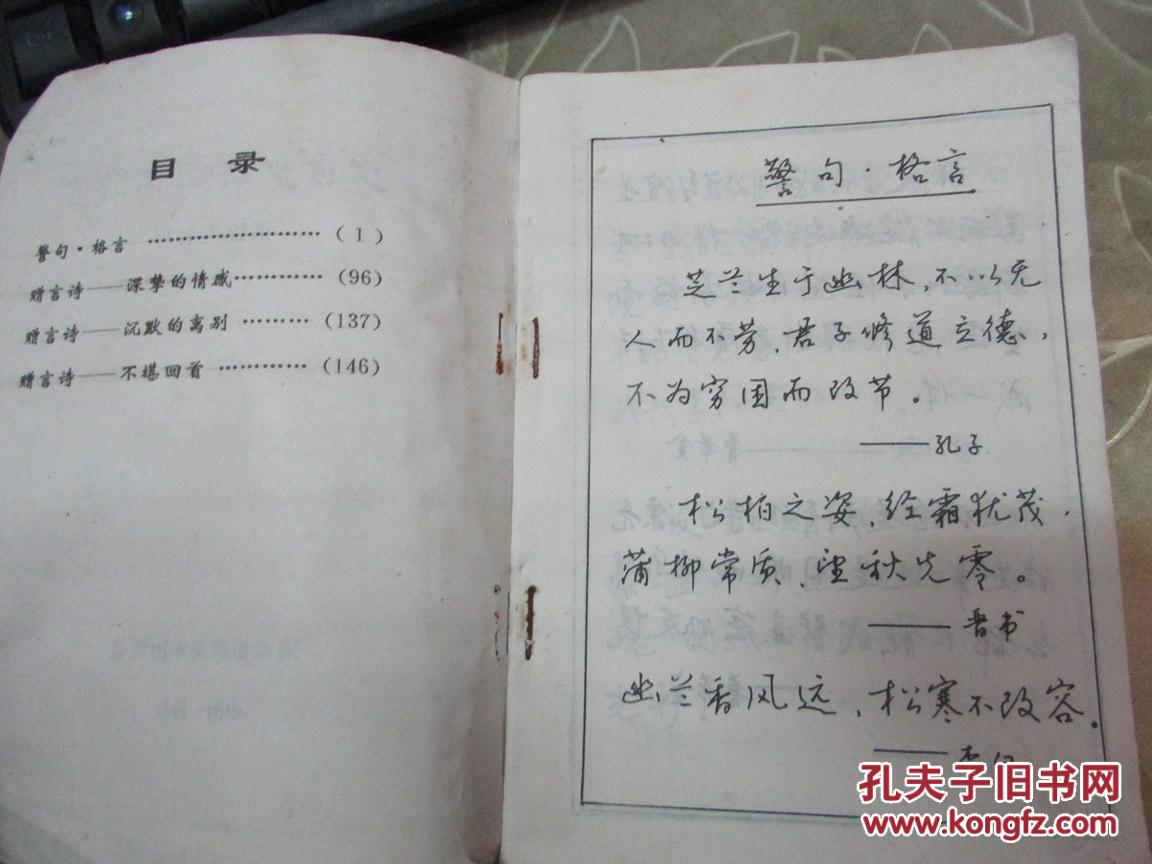 目 录
警句·格言 ……………………（1）
赠言诗——深挚的情感…………（96）
赠言诗——沉默的离别 ………（137）
赠言诗——不堪回首 …………（146）
警句 格言
芝兰生于幽林，不以无
人而不劳，君子修道立德，
不为穷困而改节。
——孔子
松柏之姿，经霜犹茂，
蒲柳常质，望秋先零。
——晋书
幽兰香风远，松寒不改容。
孔夫子旧书网
www.kongfz.com